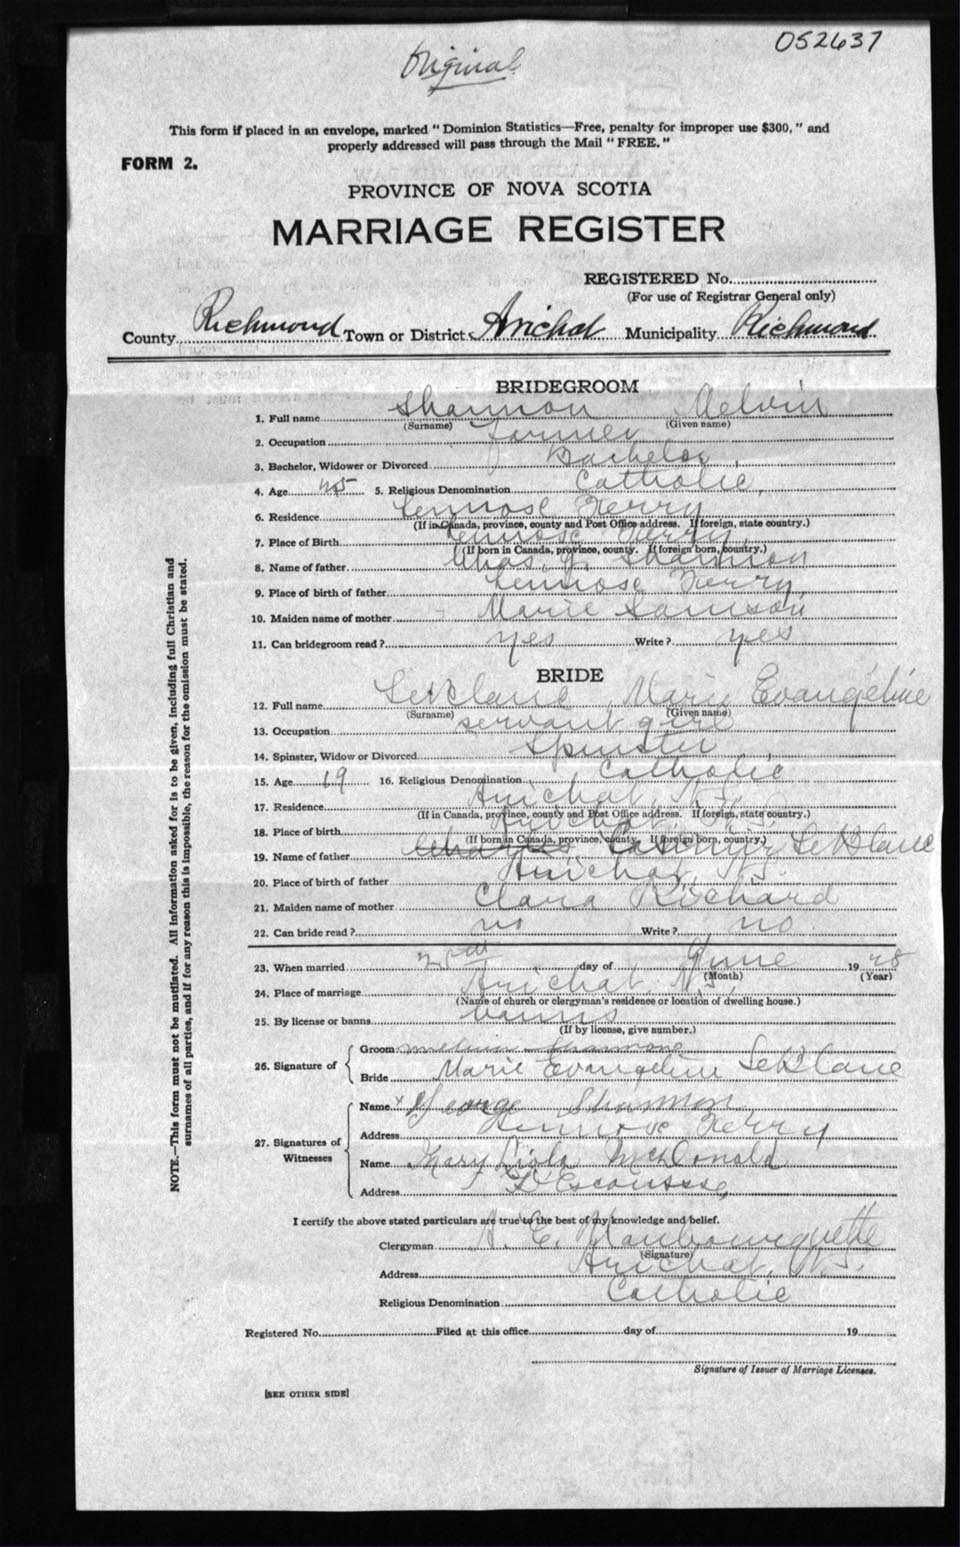 052637
Original
This form if placed in an envelope, marked " Dominion Statistics—Free, penalty for improper use $300, " and
properly addressed will pass through the Mail " FREE. "
FORM 2.
PROVINCE OF NOVA SCOTIA
MARRIAGE REGISTER
REGISTERED No.
(For use of Registrar General only)
County Richmond Town or District Arichat Municipality Richmond
BRIDEGROOM
1. Full name Shannon Melvin
(Surname) (Given name)
2. Occupation farmer
3. Bachelor, Widower or Divorced Bachelor
4. Age 5. Religious Denomination Catholic
6. Residence Lennose Ferry
(If in Canada, province, county and Post Office address. If foreign, state country.)
7. Place of Birth Lennose Ferry
(If born in Canada, province, county. If foreign born, country.)
8. Name of father Chas. J. Shannon
9. Place of birth of father Lennose Ferry
10. Maiden name of mother Marie Samson
11. Can bridegroom read? yes Write? yes
BRIDE
12. Full name LeBlanc Marie Evangeline
(Surname) (Given name)
13. Occupation servant girl
14. Spinster, Widow or Divorced Spinster
15. Age 19 16. Religious Denomination Catholic
17. Residence Arichat N.S.
(If in Canada, province, county and Post Office address. If foreign, state country.)
18. Place of birth Arichat N.S.
(If born in Canada, province, county. If foreign born, country.)
19. Name of father Charles Casimir LeBlanc
20. Place of birth of father Arichat, N.S.
21. Maiden name of mother Clara Richard
22. Can bride read? no Write? no
23. When married 25th day of June 1928
(Month) (Year)
24. Place of marriage Arichat N.S.
(Name of church or clergyman's residence or location of dwelling house.)
25. By license or banns banns
(If by license, give number.)
26. Signature of
Groom Melvin Shannon
Bride Marie Evangeline LeBlanc
27. Signatures of Witnesses
Name x George Shannon
Address Lennose Ferry
Name Mary Liola McDonald
Address D'Escousse
I certify the above stated particulars are true to the best of my knowledge and belief.
Clergyman A. E. Mombourquette
(Signature)
Address Arichat, N.S.
Religious Denomination Catholic
Registered No. Filed at this office day of 19
Signature of Issuer of Marriage Licenses.
[SEE OTHER SIDE]
NOTE.—This form must not be mutilated. All information asked for is to be given, including full Christian and
surnames of all parties, and if for any reason this is impossible, the reason for the omission must be stated.